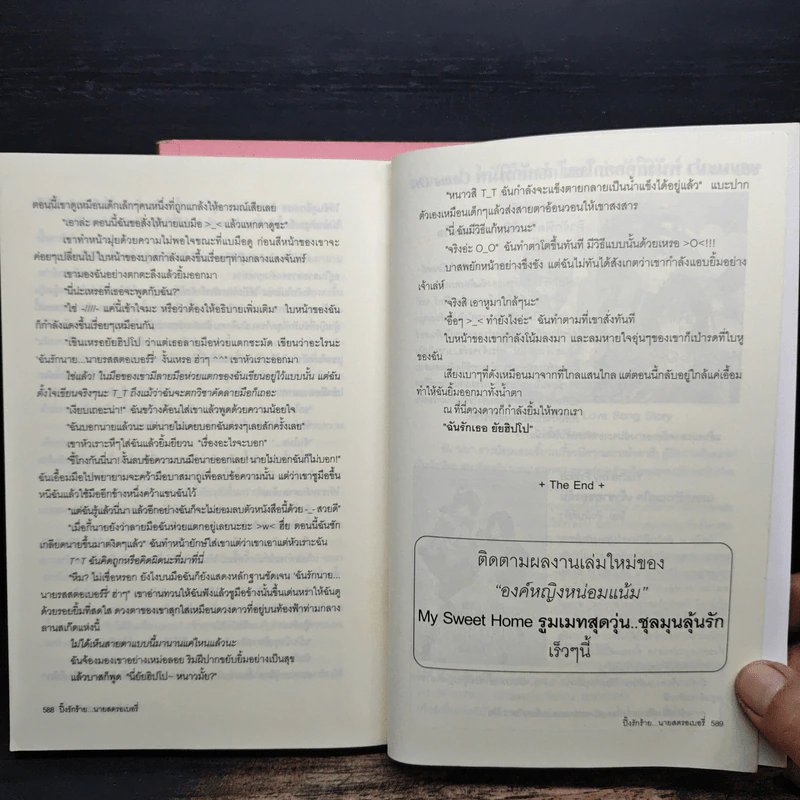 ตอนนี้เขาดูเหมือนเด็กเล็กๆคนหนึ่งที่ถูกแกล้งให้อารมณ์เสียเลย
"เอาล่ะ ตอนนี้ฉันขอสั่งให้นายแบมือ >_< แล้วแหกตาดูซะ"
เขาทำหน้ามุ่ยด้วยความไม่พอใจขณะที่แบมือดู ก่อนสีหน้าของเขาจะ
ค่อยๆเปลี่ยนไป ใบหน้าของบาสกำลังแดงขึ้นเรื่อยๆท่ามกลางแสงจันทร์
เขามองฉันอย่างตกตะลึงแล้วยิ้มออกมา
"นี่น่ะเหรอที่เธอจะพูดกับฉัน?"
"ใช่ -////- แค่นี้เข้าใจมะ หรือว่าต้องให้อธิบายเพิ่มเติม" ใบหน้าของฉัน
ก็กำลังแดงขึ้นเรื่อยๆเหมือนกัน
"เขินเหรอยัยฮิปโป ว่าแต่เธอลายมือห่วยแตกชะมัด เขียนว่าอะไรนะ
'ฉันรักนาย...นายรสสตอเบอร์รี่' งั้นเหรอ ฮ่าๆ ^^" เขาหัวเราะออกมา
ใช่แล้ว! ในมือของเขามีลายมือห่วยแตกของฉันเขียนอยู่ไว้แบบนั้น แต่ฉัน
ตั้งใจเขียนจริงๆนะ T_T ถึงแม้ว่าฉันจะตกวิชาคัดลายมือก็เถอะ
"เงียบเถอะน่า!" ฉันขว้างค้อนใส่เขาแล้วพูดด้วยความน้อยใจ
"ฉันบอกนายแล้วนะ แต่นายไม่เคยบอกฉันตรงๆเลยสักครั้งเลย"
เขาหัวเราะหึๆใส่ฉันแล้วยิ้มยียวน "เรื่องอะไรจะบอก"
"ขี้โกงกันนี่นา! งั้นลบข้อความบนมือนายออกเลย! นายไม่บอกฉันก็ไม่บอก!"
ฉันเอื้อมมือไปพยายามจะคว้ามือบาสมาถูเพื่อลบข้อความนั้น แต่ว่าเขาชูมือขึ้น
หนีฉันแล้วใช้มืออีกข้างหนึ่งคว้าแขนฉันไว้
"แต่ฉันรู้แล้วนี่นา แล้วอีกอย่างฉันก็จะไม่ยอมลบตัวหนังสือนี้ด้วย -_- สวยดี"
"เมื่อกี้นายยังว่าลายมือฉันห่วยแตกอยู่เลยนะยะ >w< ฮึ่ย ตอนนี้ฉันชัก
เกลียดนายขึ้นมาตงิดๆแล้ว" ฉันทำหน้ายักษ์ใส่เขาแต่ว่าเขาเอาแต่หัวเราะฉัน
T^T ฉันคิดถูกหรือคิดผิดนะที่มาที่นี่
"หืม? ไม่เชื่อหรอก ยังไงบนมือฉันก็ยังแสดงหลักฐานชัดเจน 'ฉันรักนาย...
นายรสสตอเบอร์รี่' ฮ่าๆ" เขาอ่านทวนให้ฉันฟังแล้วชูมือข้างนั้นขึ้นเด่นหราให้ฉันดู
ด้วยรอยยิ้มที่สดใส ดวงตาของเขาสุกใสเหมือนดวงดาวที่อยู่บนท้องฟ้าท่ามกลาง
ลานสเก็ตแห่งนี้
ไม่ได้เห็นสายตาแบบนี้มานานแค่ไหนแล้วนะ
ฉันจ้องมองเขาอย่างเหม่อลอย ริมฝีปากขยับยิ้มอย่างเป็นสุข
แล้วบาสก็พูด "นี่ยัยฮิปโป~ หนาวมั้ย?"
588 ปิ๊งรักร้าย...นายสตรอเบอรี่
"หนาวสิ T_T ฉันกำลังจะแข็งตายกลายเป็นน้ำแข็งได้อยู่แล้ว" แบะปาก
ตัวเองเหมือนเด็กๆแล้วส่งสายตาอ้อนวอนให้เขาสงสาร
"นี่ ฉันมีวิธีแก้หนาวนะ"
"จริงอ่ะ O_O" ฉันทำตาโตขึ้นทันที มีวิธีแบบนั้นด้วยเหรอ >O<!!!
บาสพยักหน้าอย่างขึงขัง แต่ฉันไม่ทันได้สังเกตว่าเขากำลังแอบยิ้มอย่าง
เจ้าเล่ห์
"จริงสิ เอาหูมาใกล้ๆนะ"
"อื้อๆ >_< ทำยังไงอ่ะ" ฉันทำตามที่เขาสั่งทันที
ใบหน้าของเขากำลังโน้มลงมา และลมหายใจอุ่นๆของเขาก็เป่ารดที่ใบหู
ของฉัน
เสียงเบาๆที่ดังเหมือนมาจากที่ไกลแสนไกล แต่ตอนนี้กลับอยู่ใกล้แค่เอื้อม
ทำให้ฉันยิ้มออกมาทั้งน้ำตา
ณ ที่นี่ดวงดาวก็กำลังยิ้มให้พวกเรา
"ฉันรักเธอ ยัยฮิปโป"
+ The End +
ติดตามผลงานเล่มใหม่ของ
"องค์หญิงหน่อมแน้ม"
My Sweet Home รูมเมทสุดวุ่น..ชุลมุนลุ้นรัก
เร็วๆนี้
ปิ๊งรักร้าย...นายสตรอเบอรี่ 589